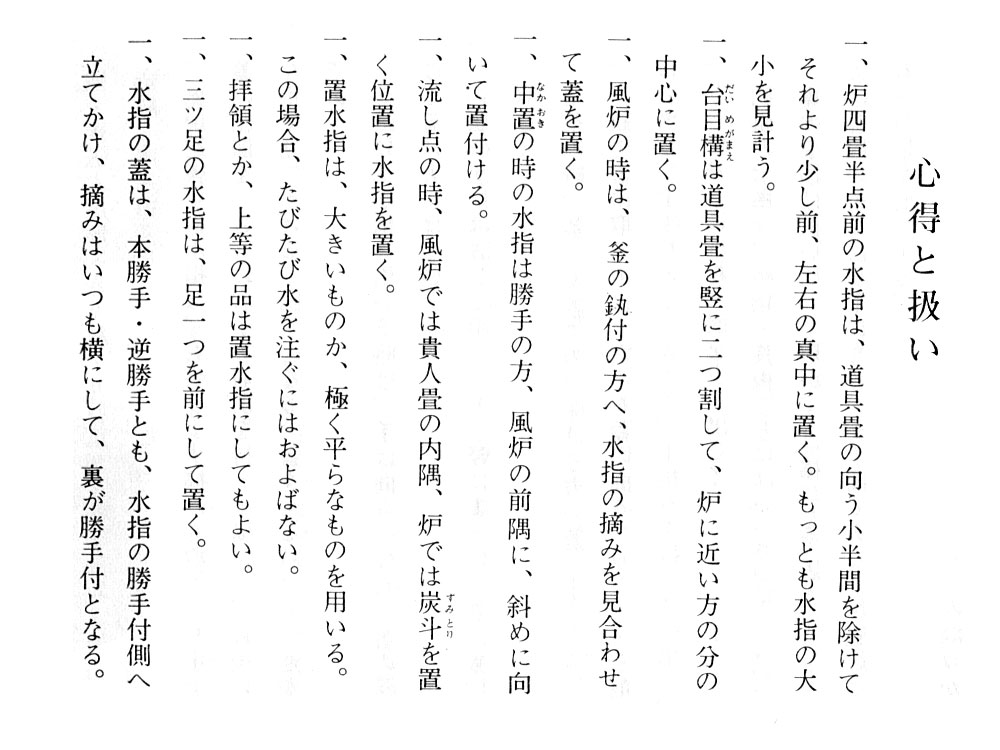 心得と扱い
一、炉四畳半点前の水指は、道具畳の向う小半間を除けて
それより少し前、左右の真中に置く。もっとも水指の大
小を見計う。
一、台目構は道具畳を竪に二つ割して、炉に近い方の分の
中心に置く。
一、風炉の時は、釜の釻付の方へ、水指の摘みを見合わせ
て蓋を置く。
一、中置の時の水指は勝手の方、風炉の前隅に、斜めに向
いて置付ける。
一、流し点の時、風炉では貴人畳の内隅、炉では炭斗を置
く位置に水指を置く。
一、置水指は、大きいものか、極く平らなものを用いる。
この場合、たびたび水を注ぐにはおよばない。
一、拝領とか、上等の品は置水指にしてもよい。
一、三ツ足の水指は、足一つを前にして置く。
一、水指の蓋は、本勝手・逆勝手とも、水指の勝手付側へ
立てかけ、摘みはいつも横にして、裏が勝手付となる。